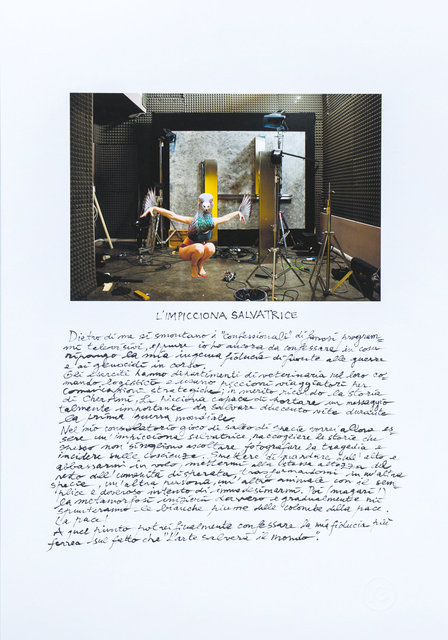 L'IMPICCIONA SALVATRICE
Dietro di me si smontano i "confessionali" di famosi program_
mi televisivi, eppure io ho ancora da confessare in cosa
ripongo la mia ingenua fiducia di fronte alle guerre
e ai genocidi in corso.
Gli eserciti hanno dipartimenti di veterinaria nel loro co_
mando logistico e usano piccioni viaggiatori per
comunicazioni strategiche; in merito ricordo la storia
di Cher Ami. La picciona capace di portare un messaggio
talmente importante da salvare duecento vite durante
la prima guerra mondiale.
Nel mio consolatorio gioco di salto di specie vorrei allora es_
sere un'impicciona salvatrice, raccogliere le storie che
spesso non si vogliono ascoltare, fotografare la tragedia e
incidere sulle coscienze. Smettere di guardare dall'alto e
abbassarmi in volo, mettermi alla stessa altezza del
resto dell'umanità disperata, trasformandomi in un'altra
specie, un'altra persona, un altro animale con il sem_
plice e doveroso intento di immedesimarmi. Poi magari
la metamorfosi unificherà davvero e gradualmente mi
spunteranno le bianche piume delle colombe della pace.
La pace!
A quel punto potrei finalmente confessare la mia fiducia più
ferrea sul fatto che "L'arte salverà il mondo".